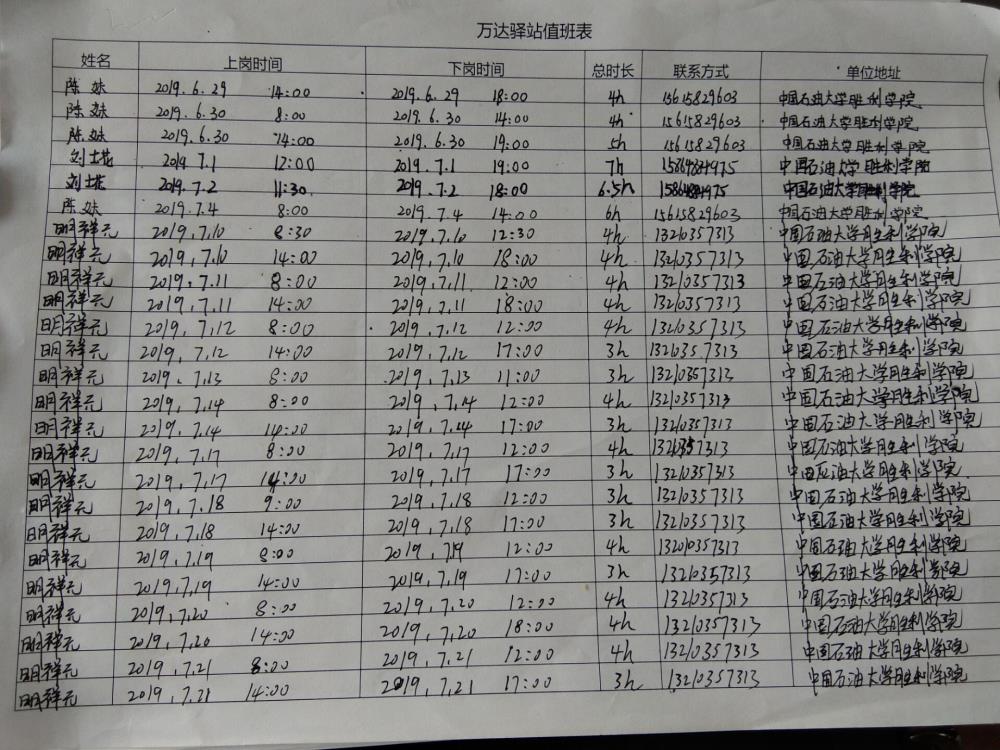 万达驿站值班表
姓名 上岗时间 下岗时间 总时长 联系方式 单位地址
陈妹 2019.6.29 14:00 2019.6.29 18:00 4h 15615829603 中国石油大学胜利学院
陈妹 2019.6.30 8:00 2019.6.30 14:00 4h 15615829603 中国石油大学胜利学院
陈妹 2019.6.30 14:00 2019.6.30 19:00 5h 15615829603 中国石油大学胜利学院
2019 7.1 12:00 2019.7.1 19:00 7h 中国石油大学胜利学院
2019.7.2 11:30 2019.7.2 18:00 6.5h 中国石油大学胜利学院
陈妹 2019.7.4 8:00 2019.7.4 14:00 6h 15615829603 中国石油大学胜利学院
明祥元 2019,7,10 8:30 2019,7,10 12:30 4h 13210357313 中国石油大学胜利学院
明祥元 2019,7,10 14:00 2019,7,10 18:00 4h 13210357313 中国石油大学胜利学院
明祥元 2019,7,11 8:00 2019,7,11 12:00 4h 13210357313 中国石油大学胜利学院
明祥元 2019,7,11 14:00 2019,7,11 18:00 4h 13210357313 中国石油大学胜利学院
明祥元 2019,7,12 8:00 2019,7,12 12:00 4h 13210357313 中国石油大学胜利学院
明祥元 2019,7,12 14:00 2019,7,12 17:00 3h 13210357313 中国石油大学胜利学院
明祥元 2019,7,13 8:00 2019,7,13 11:00 3h 13210357313 中国石油大学胜利学院
明祥元 2019,7,14 8:00 2019,7,14 12:00 4h 13210357313 中国石油大学胜利学院
明祥元 2019,7,14 14:00 2019,7,14 17:00 3h 13210357313 中国石油大学胜利学院
明祥元 2019,7,17 8:00 2019,7,17 12:00 4h 13210357313 中国石油大学胜利学院
明祥元 2019,7,17 14:00 2019,7,17 17:00 3h 13210357313 中国石油大学胜利学院
明祥元 2019,7,18 9:00 2019,7,18 12:00 3h 13210357313 中国石油大学胜利学院
明祥元 2019,7,18 14:00 2019,7,18 17:00 3h 13210357313 中国石油大学胜利学院
明祥元 2019,7,19 8:00 2019,7,19 12:00 4h 13210357313 中国石油大学胜利学院
明祥元 2019,7,19 14:00 2019,7,19 17:00 3h 13210357313 中国石油大学胜利学院
明祥元 2019,7,20 8:00 2019,7,20 12:00 4h 13210357313 中国石油大学胜利学院
明祥元 2019,7,20 14:00 2019,7,20 18:00 4h 13210357313 中国石油大学胜利学院
明祥元 2019,7,21 8:00 2019,7,21 12:00 4h 13210357313 中国石油大学胜利学院
明祥元 2019,7,21 14:00 2019,7,21 17:00 3h 13210357313 中国石油大学胜利学院